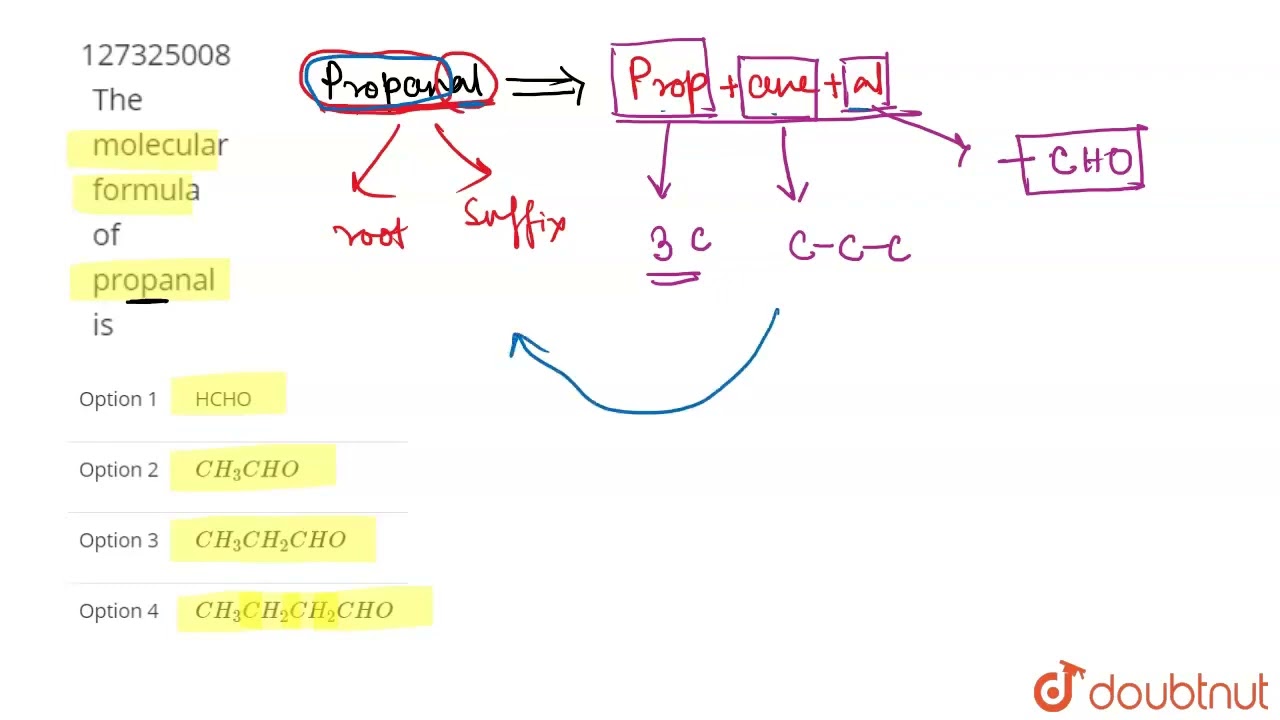 127325008
The
molecular
formula
of
propanal
is
Option 1 HCHO
Option 2 CH₃CHO
Option 3 CH₃CH₂CHO
Option 4 CH₃CH₂CH₂CHO
Propanal ⇒ Prop + ane + al
root suffix
3 C C-C-C
- CHO
doubtnut